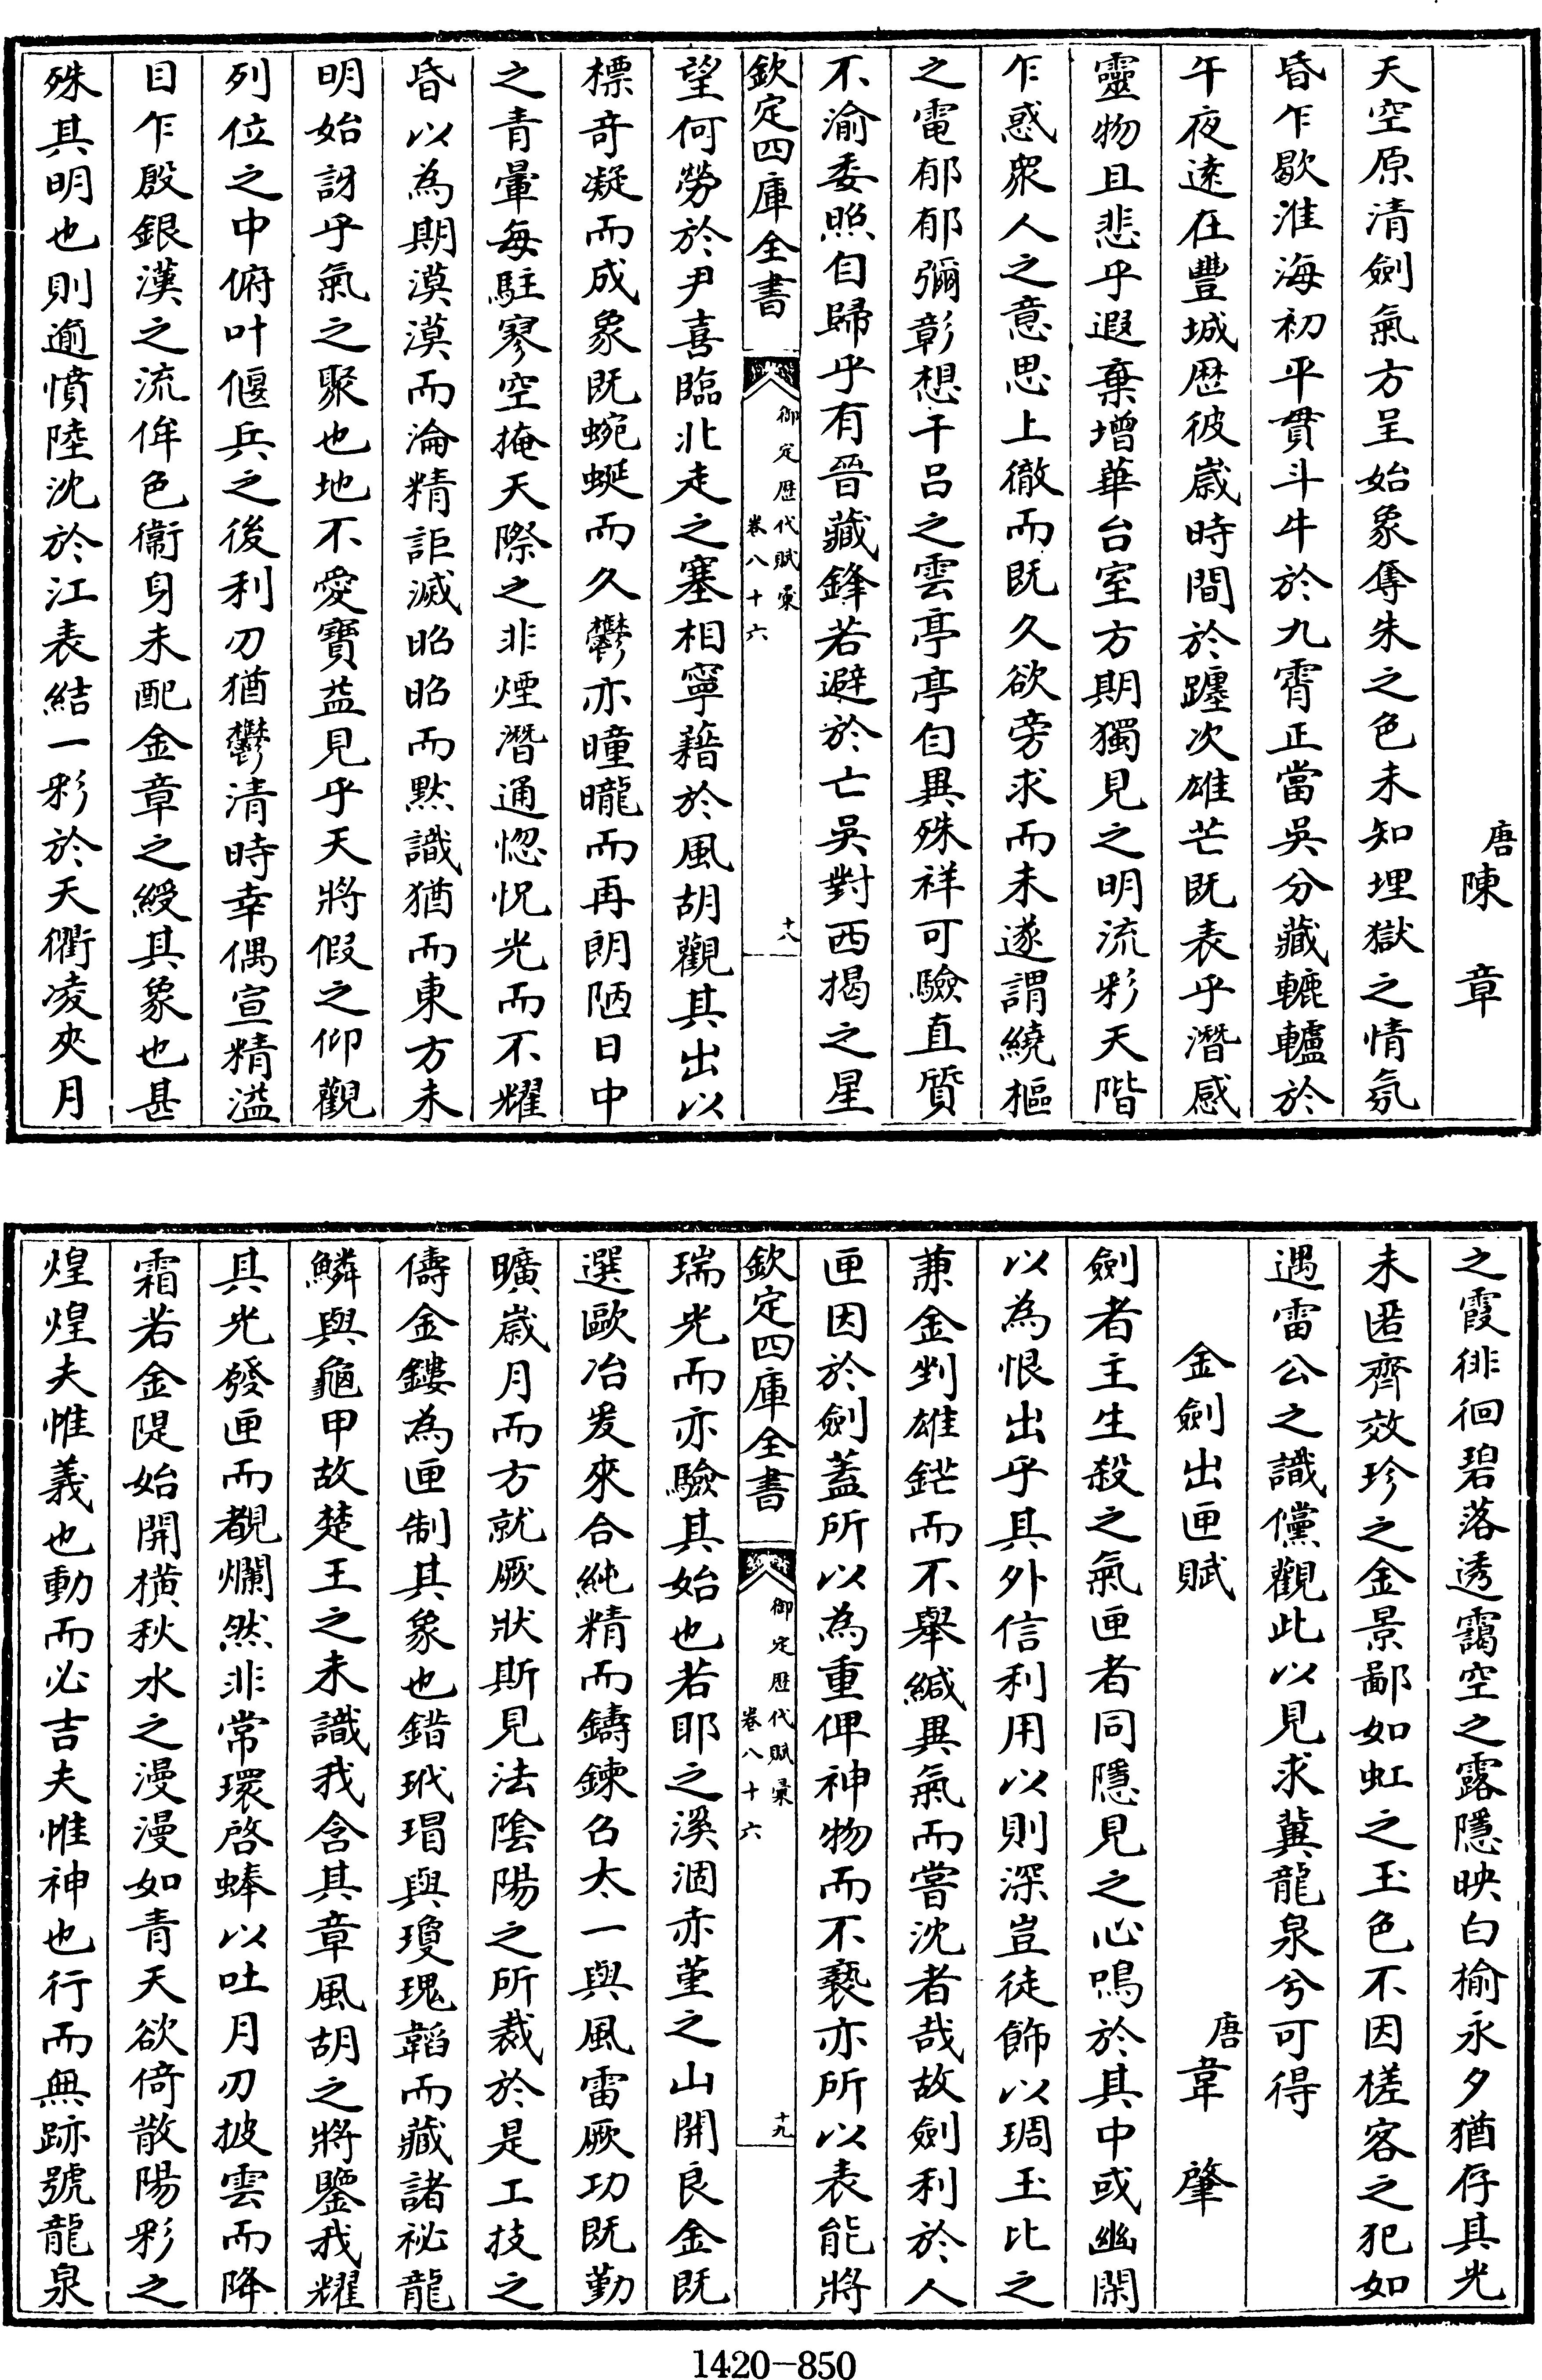 唐陳章
天空原清劍氣方呈始象奪朱之色未知埋獄之情氛
昏乍歇淮海初平貫斗牛於九霄正當吳分藏轆轤於
午夜遠在豐城歴彼歳時間於躔次雄芒既表乎潛感
靈物且悲乎遐棄增華台室方期獨見之明流彩天階
乍惑衆人之意思上徹而既久欲旁求而未遂謂繞樞
之電郁郁彌彰想干呂之雲亭亭自異殊祥可驗直質
不渝委照自歸乎有晉藏鋒若避於亡吳對西揭之星
欽定四庫全書
御定歴代賦彙
卷八十六
十八
望何勞於尹喜臨北走之塞相寧藉於風胡觀其出以
標奇凝而成象既蜿蜒而久鬱亦曈曨而再朗陋日中
之青暈每駐寥空掩天際之非煙潛通惚怳光而不耀
昏以為期漠漠而淪精詎滅昭昭而黙識猶而東方未
明始訝乎氣之聚也地不愛寶益見乎天將假之仰觀
列位之中俯叶偃兵之後利刃猶鬱清時幸偶宣精溢
目乍殷銀漢之流侔色衞身未配金章之綬其象也甚
殊其明也則逾憤陸沈於江表結一彩於天衢凌夾月
之霞徘徊碧落透靄空之露隱映白榆永夕猶存其光
未匿齊效珍之金景鄙如虹之玉色不因槎客之犯如
遇雷公之識儻觀此以見求冀龍泉兮可得
金劍出匣賦
唐韋肇
劍者主生殺之氣匣者同隱見之心鳴於其中或幽閑
以為恨出乎其外信利用以則深豈徒飾以琱玉比之
兼金剉雄鋩而不舉緘異氣而嘗沈者哉故劍利於人
匣因於劍蓋所以為重俾神物而不褻亦所以表能將
欽定四庫全書
御定歴代賦彙
卷八十六
十九
瑞光而亦驗其始也若耶之溪涸赤堇之山開良金既
選歐冶爰來合純精而鑄鍊召太一與風雷厥功既勤
曠歳月而方就厥狀斯見法陰陽之所裁於是工技之
儔金鏤為匣制其象也錯玳瑁與瓊瑰韜而藏諸祕龍
鱗與龜甲故楚王之未識我含其章風胡之將鑒我耀
其光發匣而覩爛然非常環啓蜯以吐月刃披雲而降
霜若金隄始開横秋水之漫漫如青天欲倚散陽彩之
煌煌夫惟義也動而必吉夫惟神也行而無跡號龍泉
1420-850